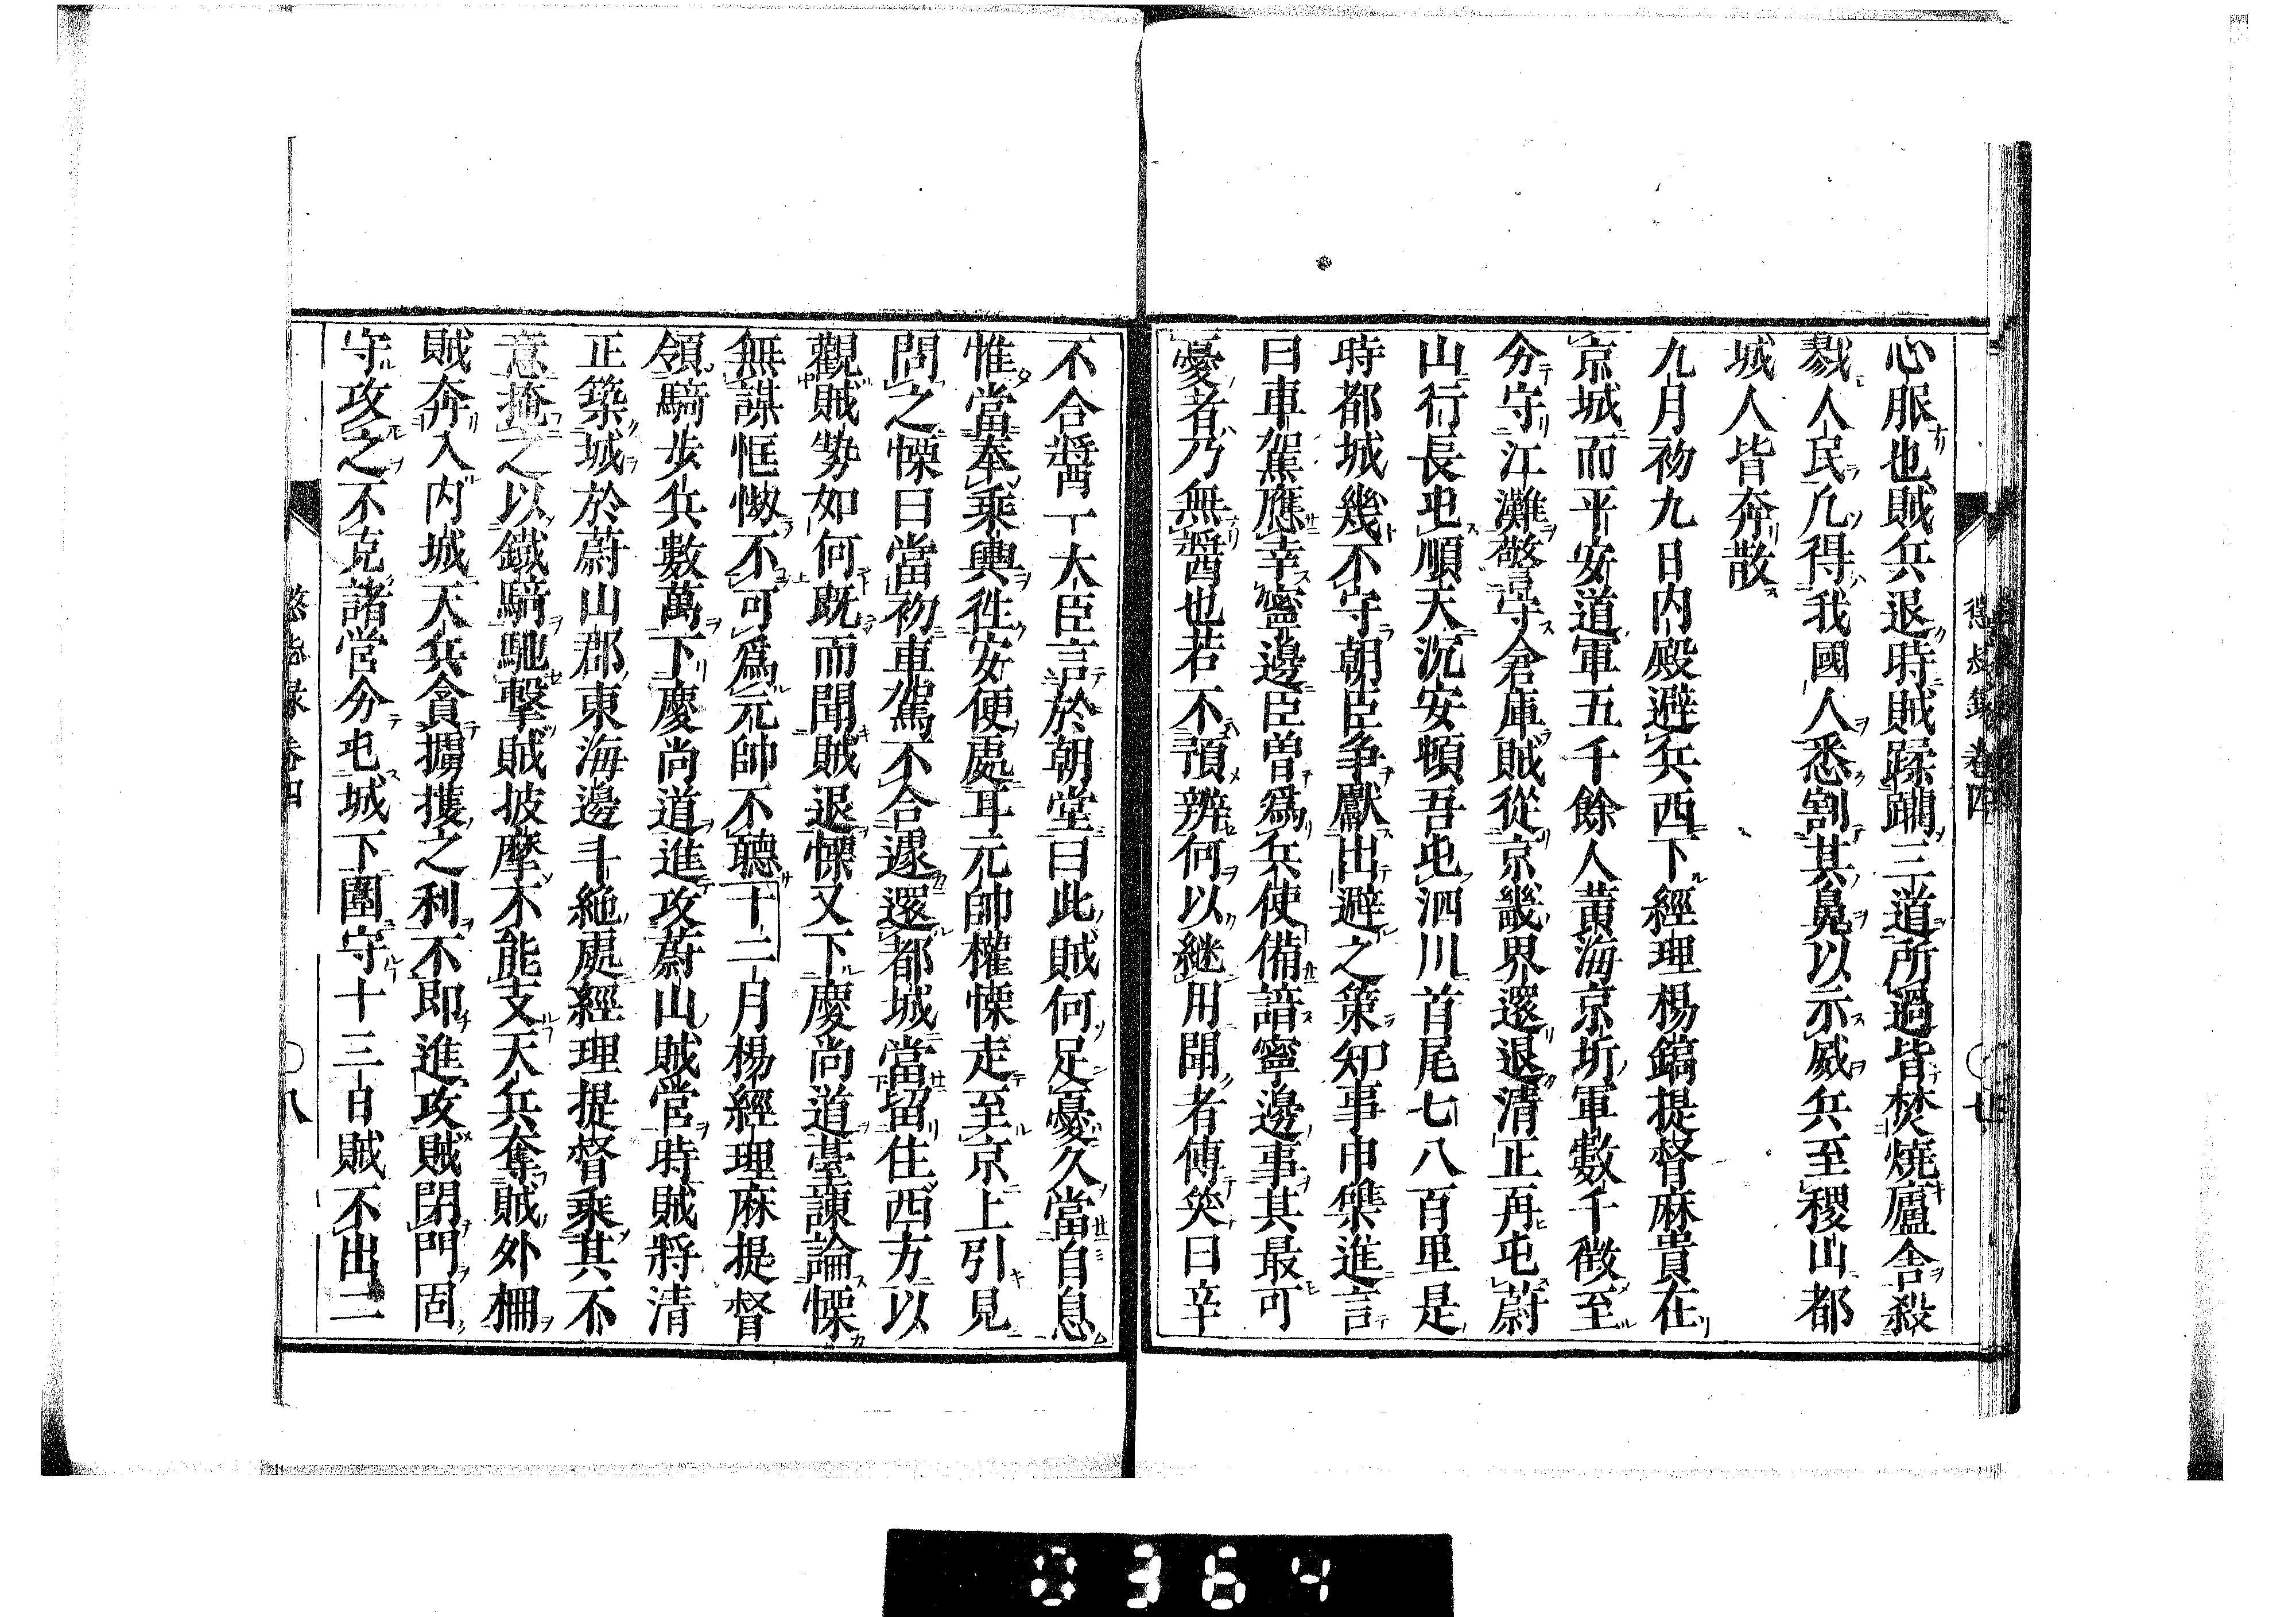 心服也賊兵退時賊蹂躪三道所過皆焚燒廬舍殺
戮人民凡得我國人悉割其鼻以示威兵至稷山都
城人皆奔散
九月初九日內殿避兵西下經理楊鎬提督麻貴在
京城而平安道軍五千餘人黃海京圻軍數千徵至
分守江灘警守倉庫賊從京畿界還退清正再屯蔚
山行長屯順天沉安頓吾屯泗川首尾七八百里是
時都城幾不守朝臣爭獻出避之策知事申𦾔進言
曰車駕應幸寧邊臣曾爲兵使備諳寧邊事其最可
憂者乃無醬也若不預辨何以継用聞者傳笑曰辛
不合醬一大臣言於朝堂曰此賊何足憂久當自息
惟當奉乘輿徃安便處耳元帥權慄走至京上引見
問之慄曰當初車駕不合遽還都城當留住西方以
觀賊勢如何既而聞賊退慄又下慶尚道臺諫論慄
無謀恇㥘不可爲元帥不聽十二月楊經理麻提督
領騎步兵數萬下慶尚道進攻蔚山賊營時賊將清
正築城於蔚山郡東海邊斗絶處經理提督乘其不
意掩之以鐵騎馳擊賊披靡不能支天兵奪賊外柵
賊奔入內城天兵貪擄獲之利不即進攻賊閉門固
守攻之不克諸營分屯城下圍守十三日賊不出二
懲毖錄 卷四 〇八